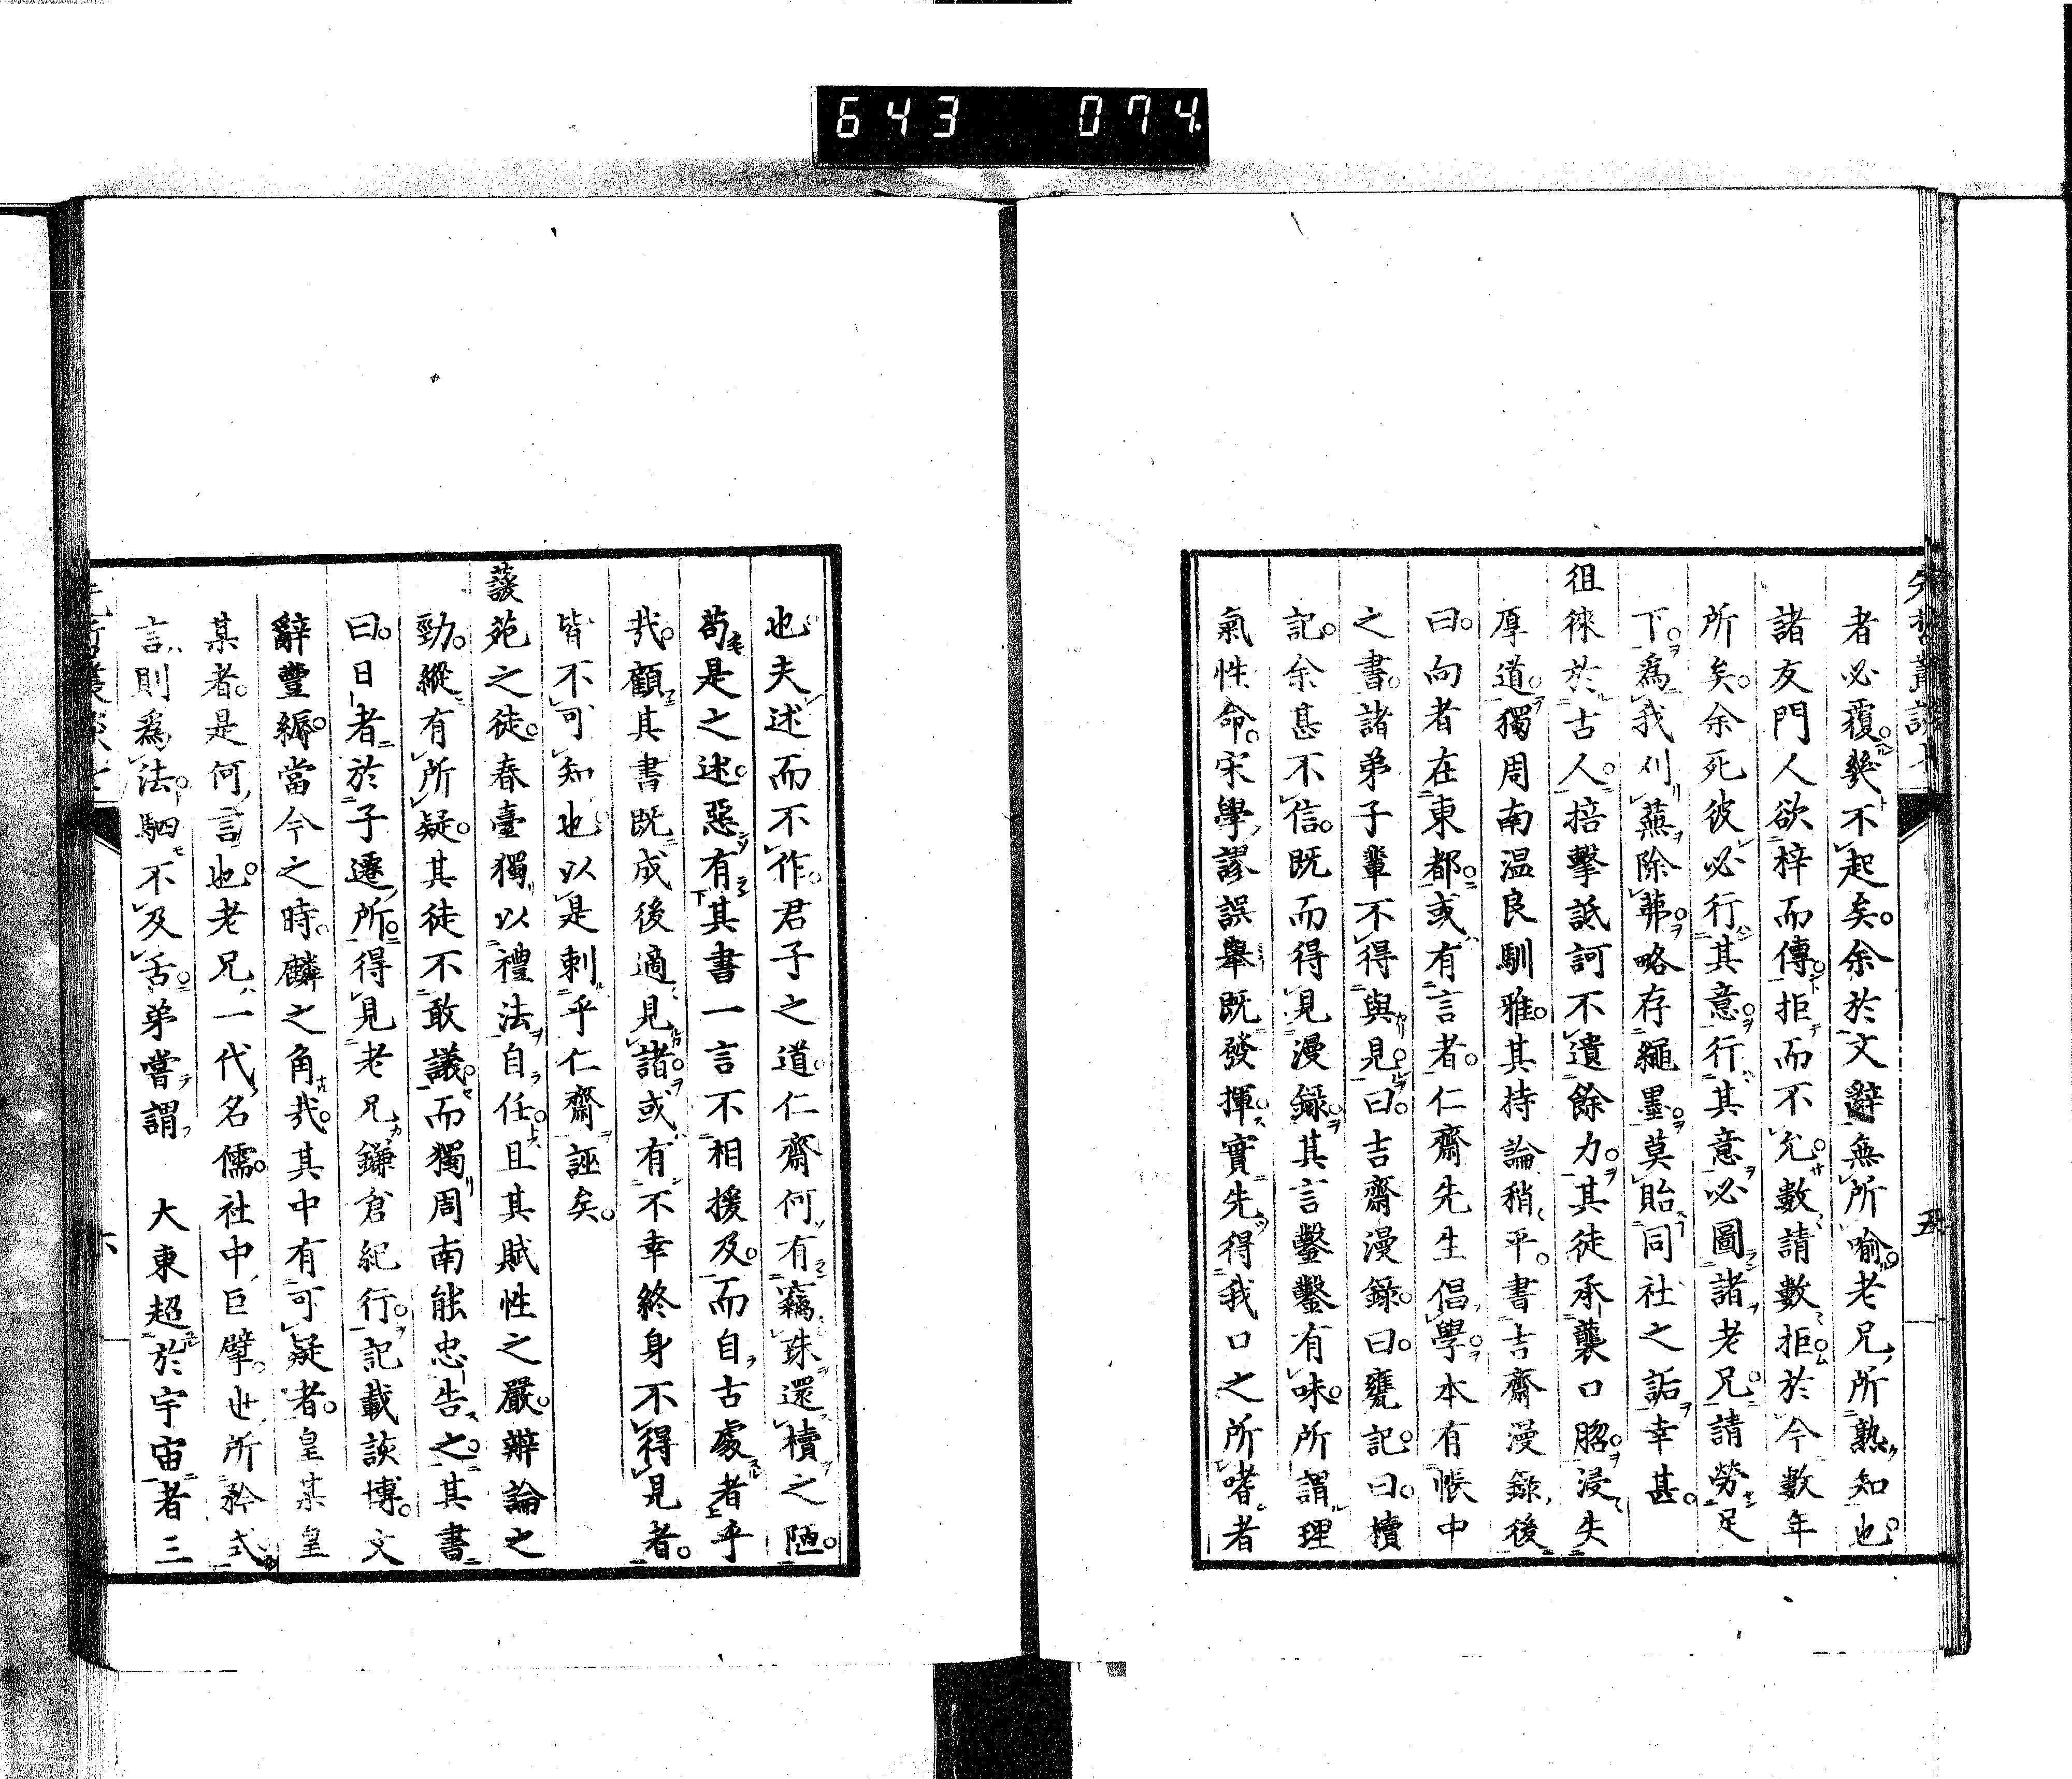 643 074
者必覆幾不起矣余於文辭無所喻老兄所熟知也
諸友門人欲梓而傳拒而不允數請數拒於今數年
所矣余死彼必行其意行其意必圖諸老兄請勞足
下爲我刈蕪除茀略存繩墨莫貽同社之詬幸甚
徂徠於古人掊擊詆訶不遺餘力其徒承襲口脗浸失
厚道獨周南温良馴雅其持論稍平書吉齋漫錄後
曰向者在東都或有言者仁齋先生倡學本有帳中
之書諸弟子輩不得與見曰吉齋漫錄曰甕記曰櫝
記余甚不信既而得見漫錄其言鑿鑿有味所謂理
氣性命宋學謬誤舉既發揮實先得我口之所嗜者
也夫述而不作君子之道仁齋何有竊珠還櫝之陋
苟是之述惡有其書一言不相援及而自古處者乎
哉顧其書既成後適見諸或有不幸終身不得見者
皆不可知也以是刺乎仁齋誣矣
蘐苑之徒春臺獨以禮法自任且其賦性之嚴辨論之
勁縱有所疑其徒不敢議而獨周南能忠告之其書
曰日者於子遷所得見老兄鎌倉紀行記載該博文
辭豐縟當今之時麟之角哉其中有可疑者皇某皇
某者是何言也老兄一代名儒社中巨擘世所矜式
言則爲法駟不及舌弟嘗謂 大東超於宇宙者三
六